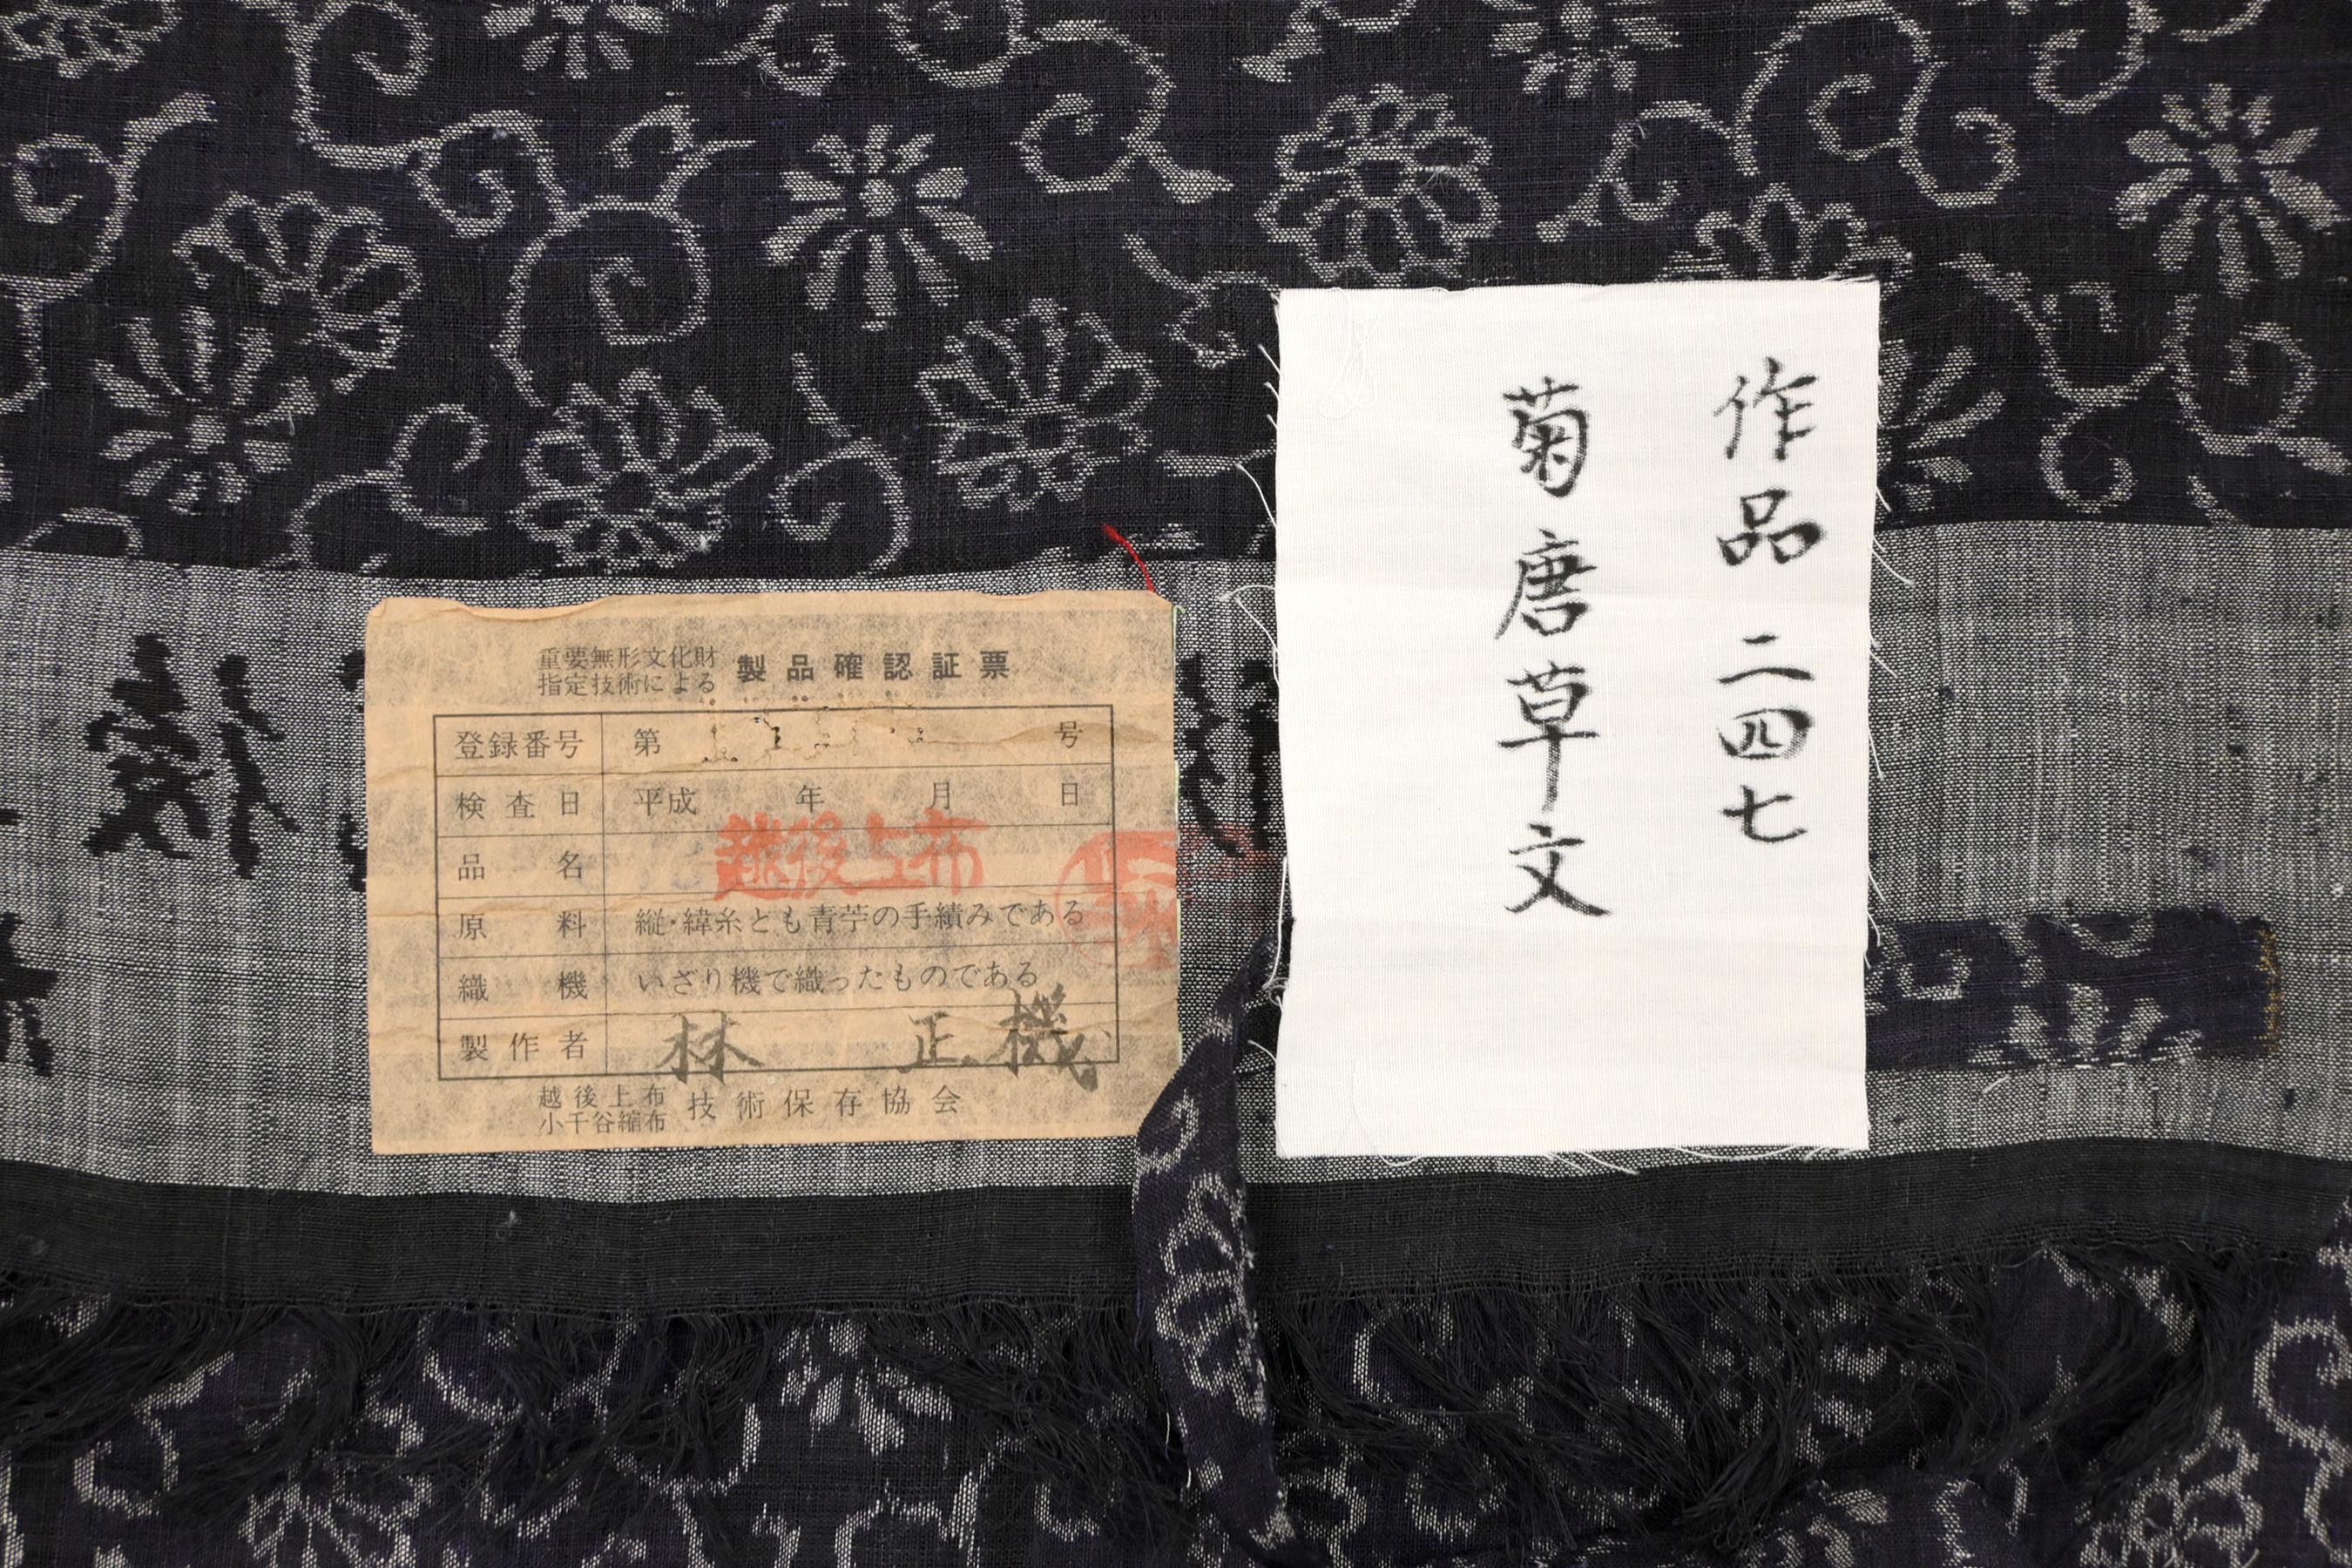 重要無形文化財
指定技術による
製品確認証票
登録番号 第 号
検査日 平成 年 月 日
品名 越後上布
原料 縦・緯糸とも青苧の手績みである
織機 いざり機で織ったものである
製作者 林 正機
越後上布
小千谷縮布
技術保存協会
作品二四七
菊唐草文